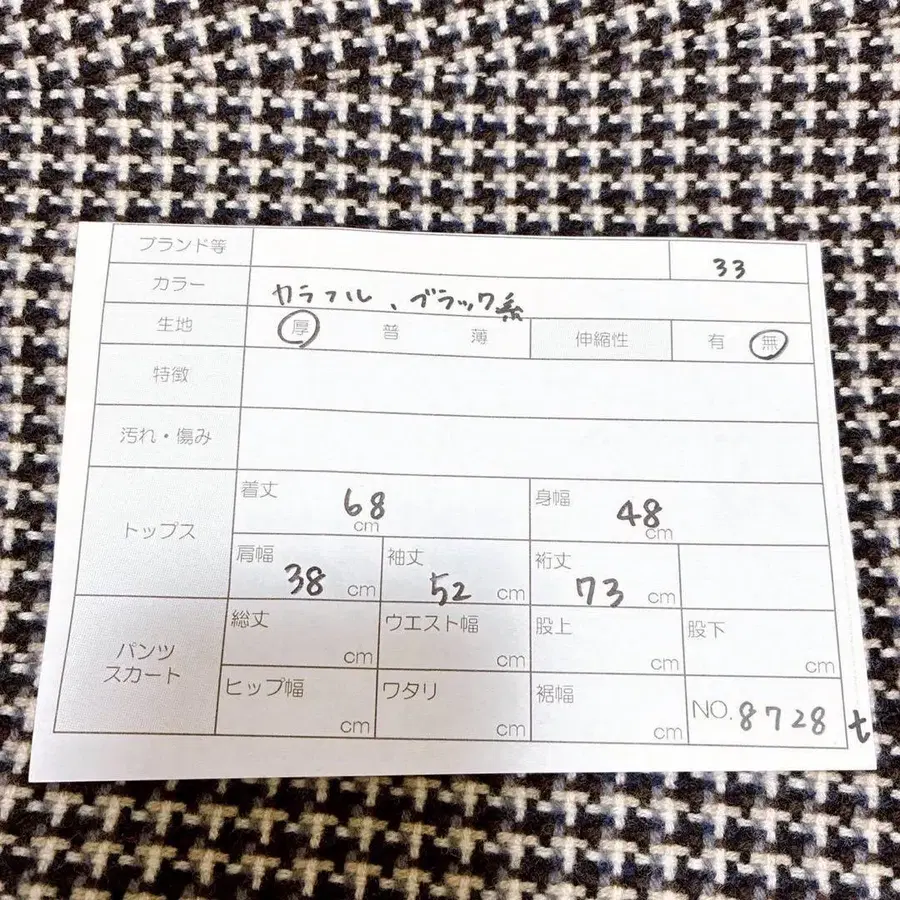 ブランド等 33
カラー カラフル、ブラック系
生地 厚 普 薄 伸縮性 有 無
特徴
汚れ・傷み
トップス
着丈 68 cm 身幅 48 cm
肩幅 38 cm 袖丈 52 cm 裄丈 73 cm
パンツ
スカート
総丈 cm ウエスト幅 cm 股上 cm 股下 cm
ヒップ幅 cm ワタリ cm 裾幅 cm NO. 8728 t